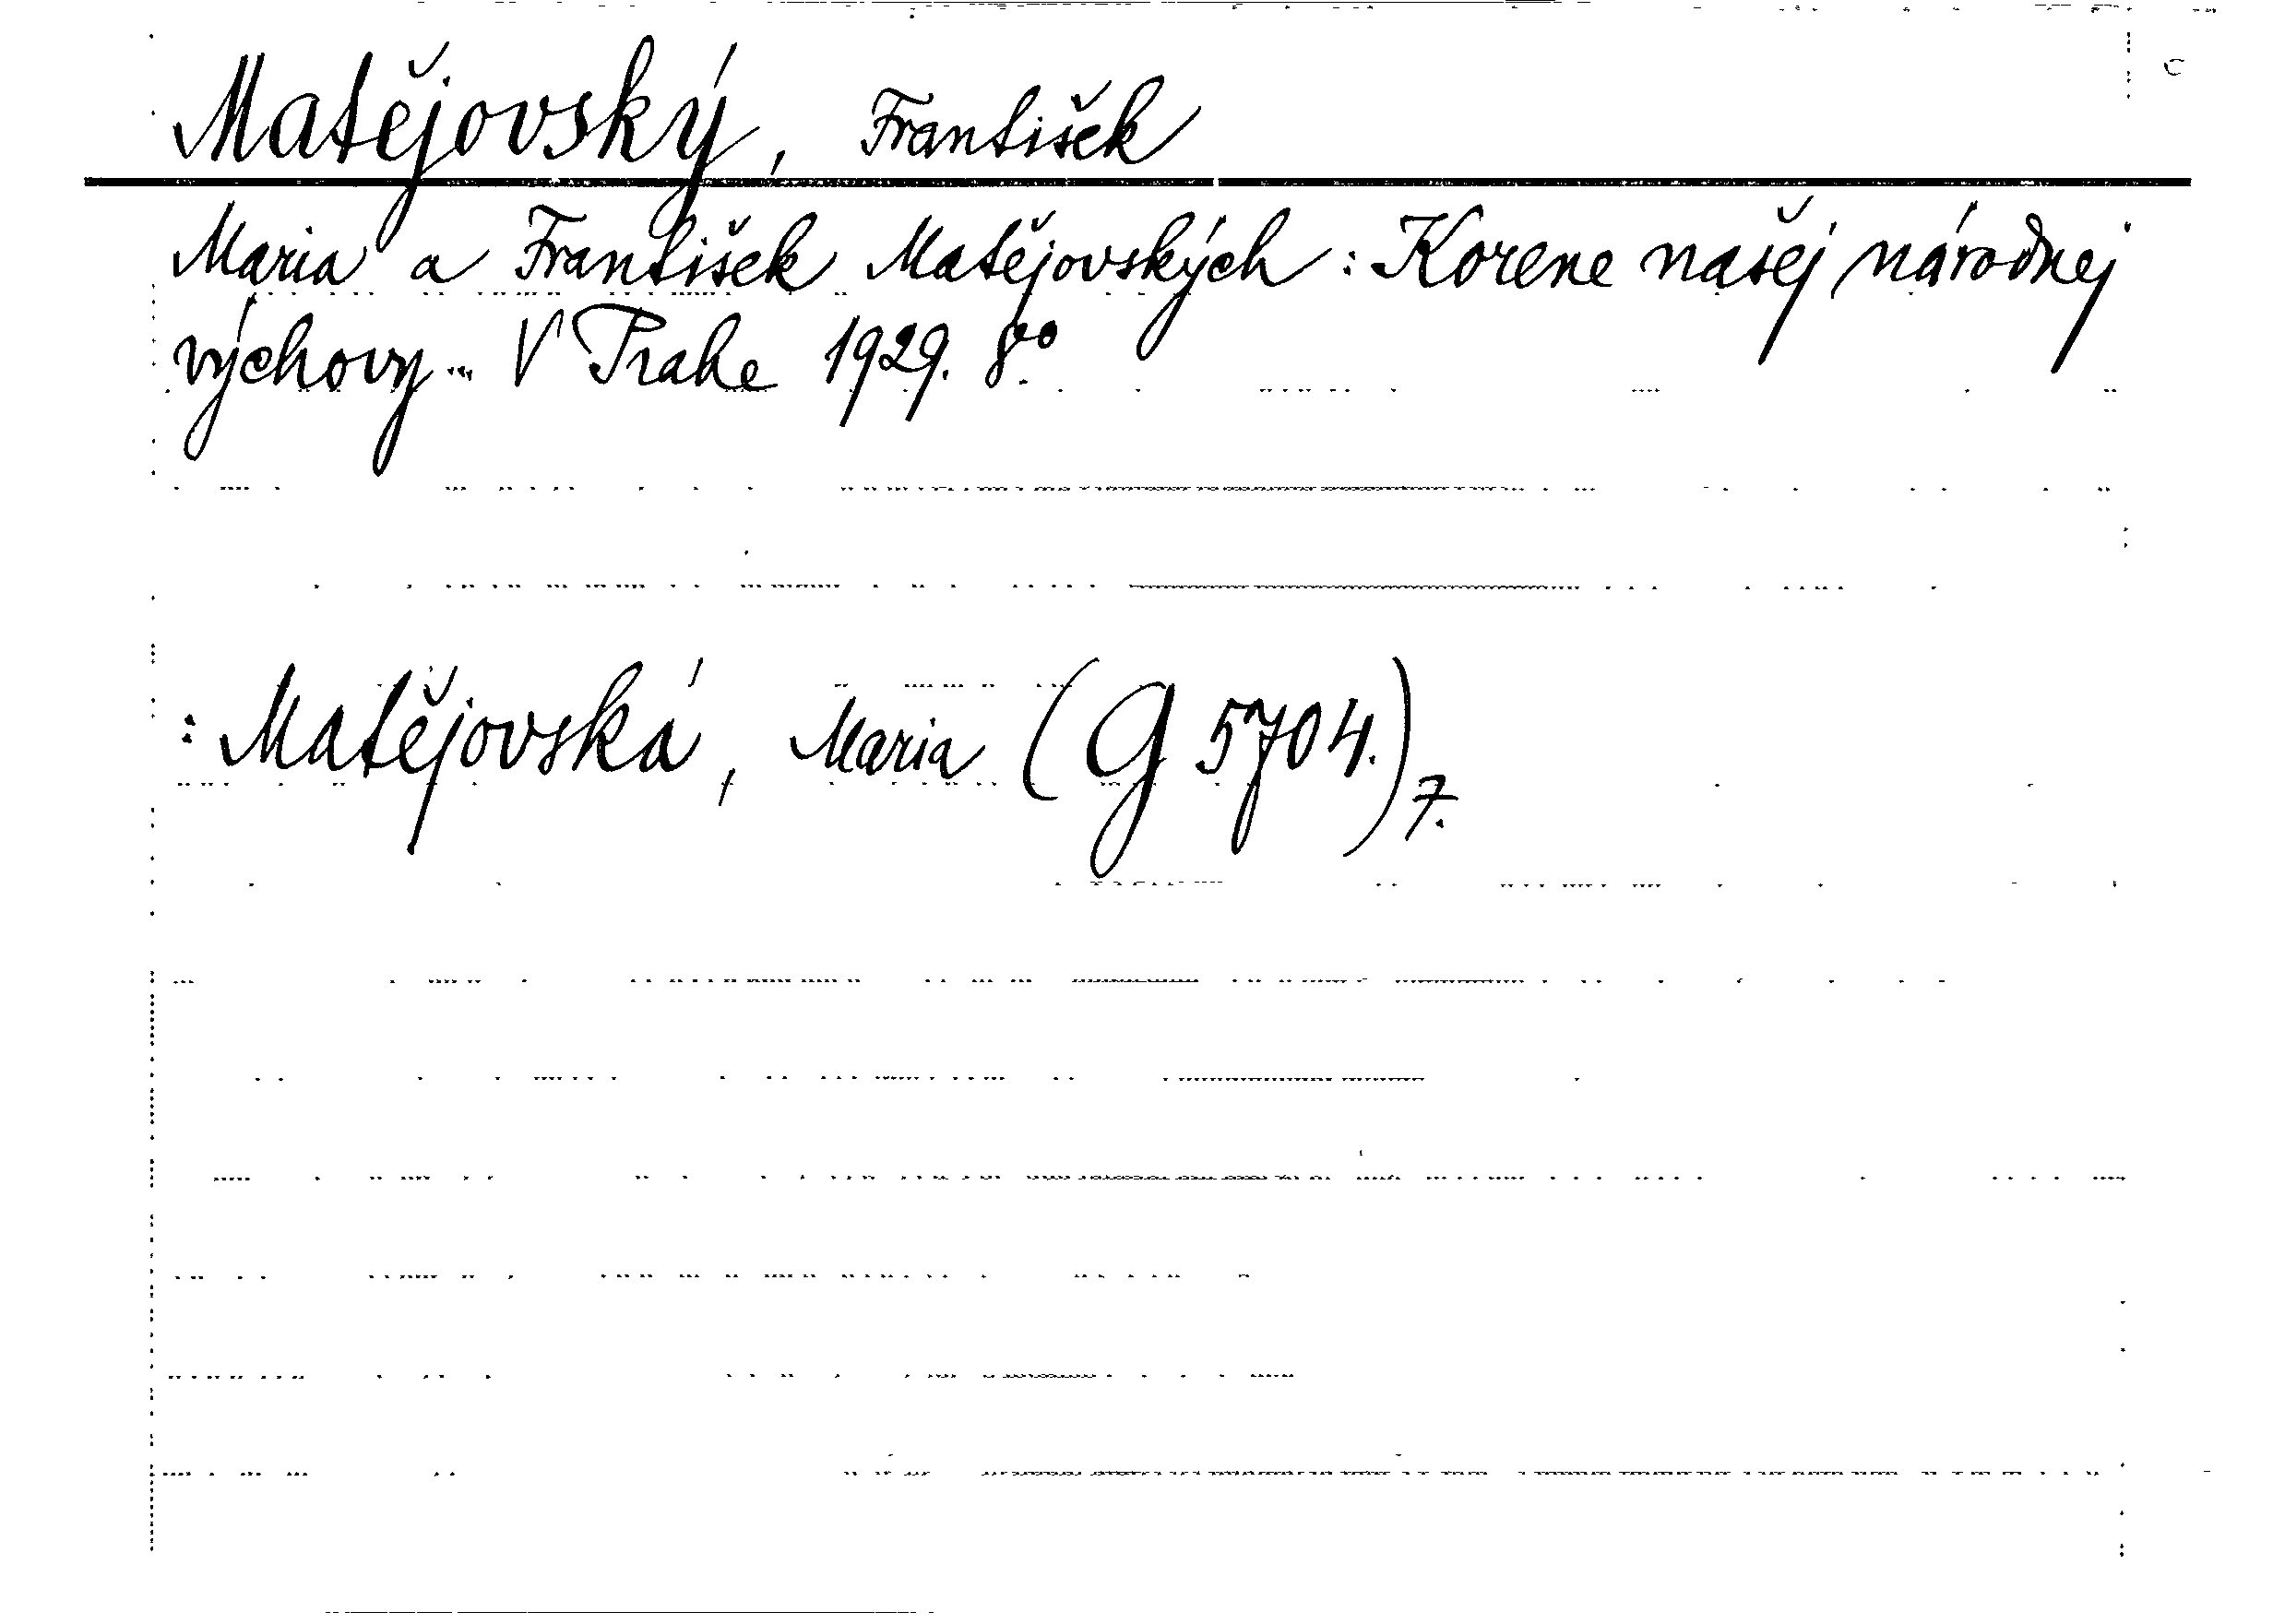 Matějovský, František
Maria a František Matějovských: Korene našej národnej
výchovy... V Prahe 1929. 8°
: Matějovská, Maria (G 5704.) 7.